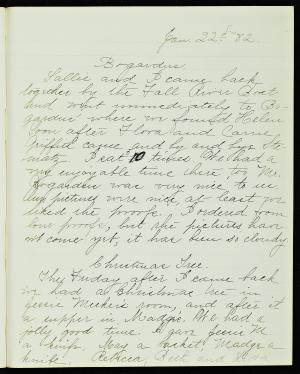 Jan. 22nd '82.
Bogardus
Sallie and I came back
together by the Fall River Boat
and went immediately to Bo-
gardus' where we found Helen
soon after Flora and Carrie
Griffith came, and by and bye the
I sat 10 times. We had a
very enjoyable time there too, Mr.
Bogardus was very nice to us.
My pictures were nice, at least we
liked the proofs. I ordered from
four proofs, but the pictures have
not come yet, it has been so cloudy.
Christmas Tree.
The Friday after I came back
we had a Christmas tree in
Jessie Meeker's room, and after it
a supper in Madge's. We had a
jolly good time. I gave Jessie M.
a knife, May a locket, Madge a
knife. Rebecca, Beth and